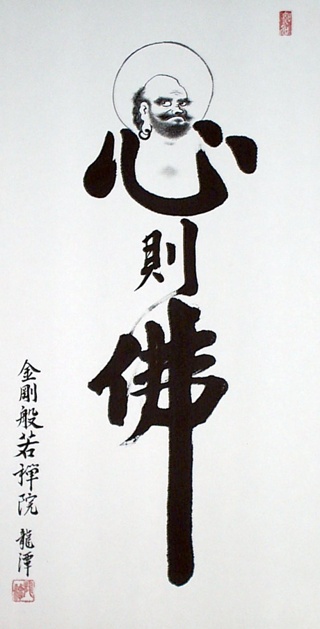 心
則
佛
金剛般若禪院 龍潭